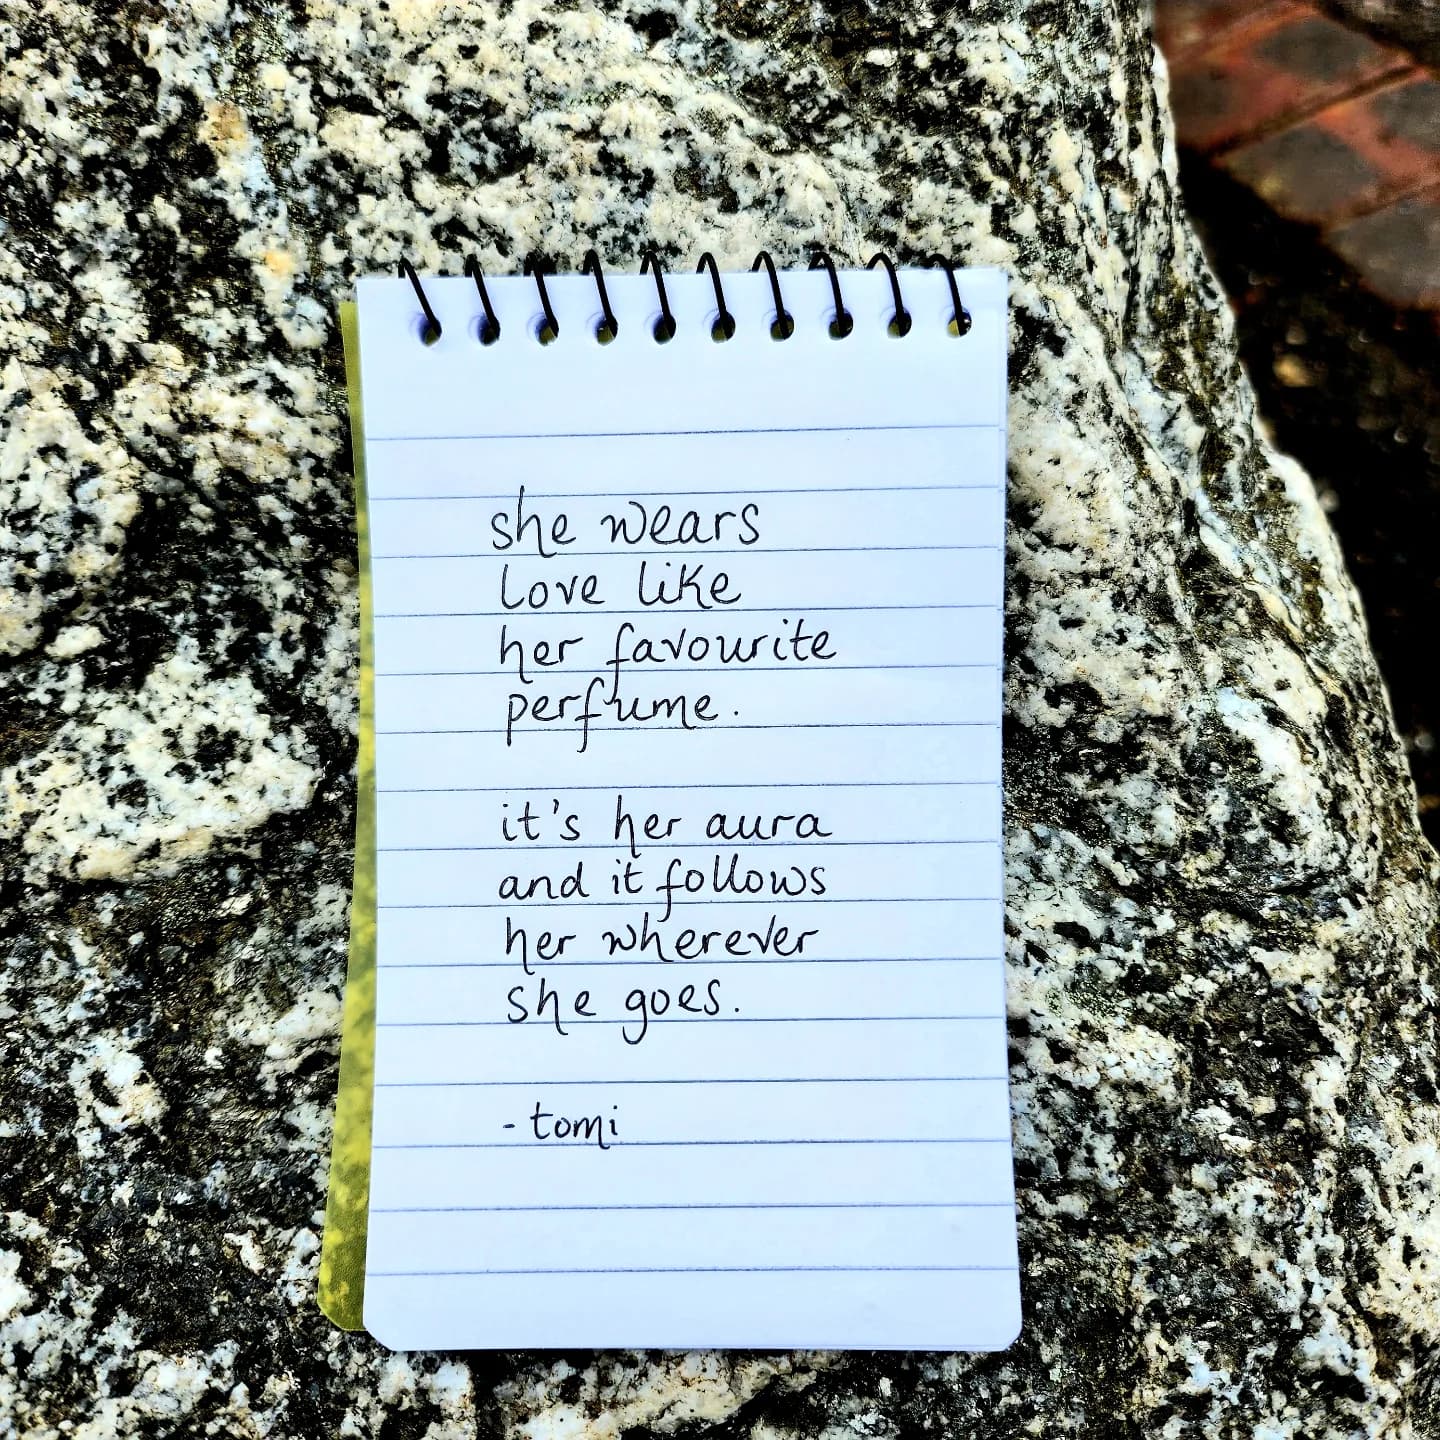 she wears
love like
her favourite
perfume.
it's her aura
and it follows
her wherever
she goes.
- tomi